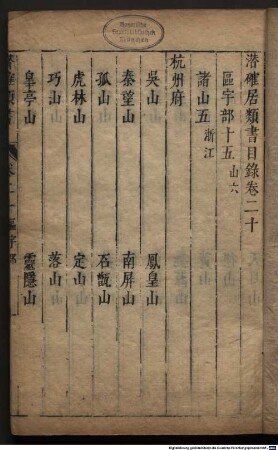 潛確居類書目錄卷二十
區宇部十五 山六
諸山五 浙江
杭州府
吳山 鳳皇山
秦望山 南屏山
孤山 石甑山
虎林山 定山
巧山 落山
皐亭山 靈隱山